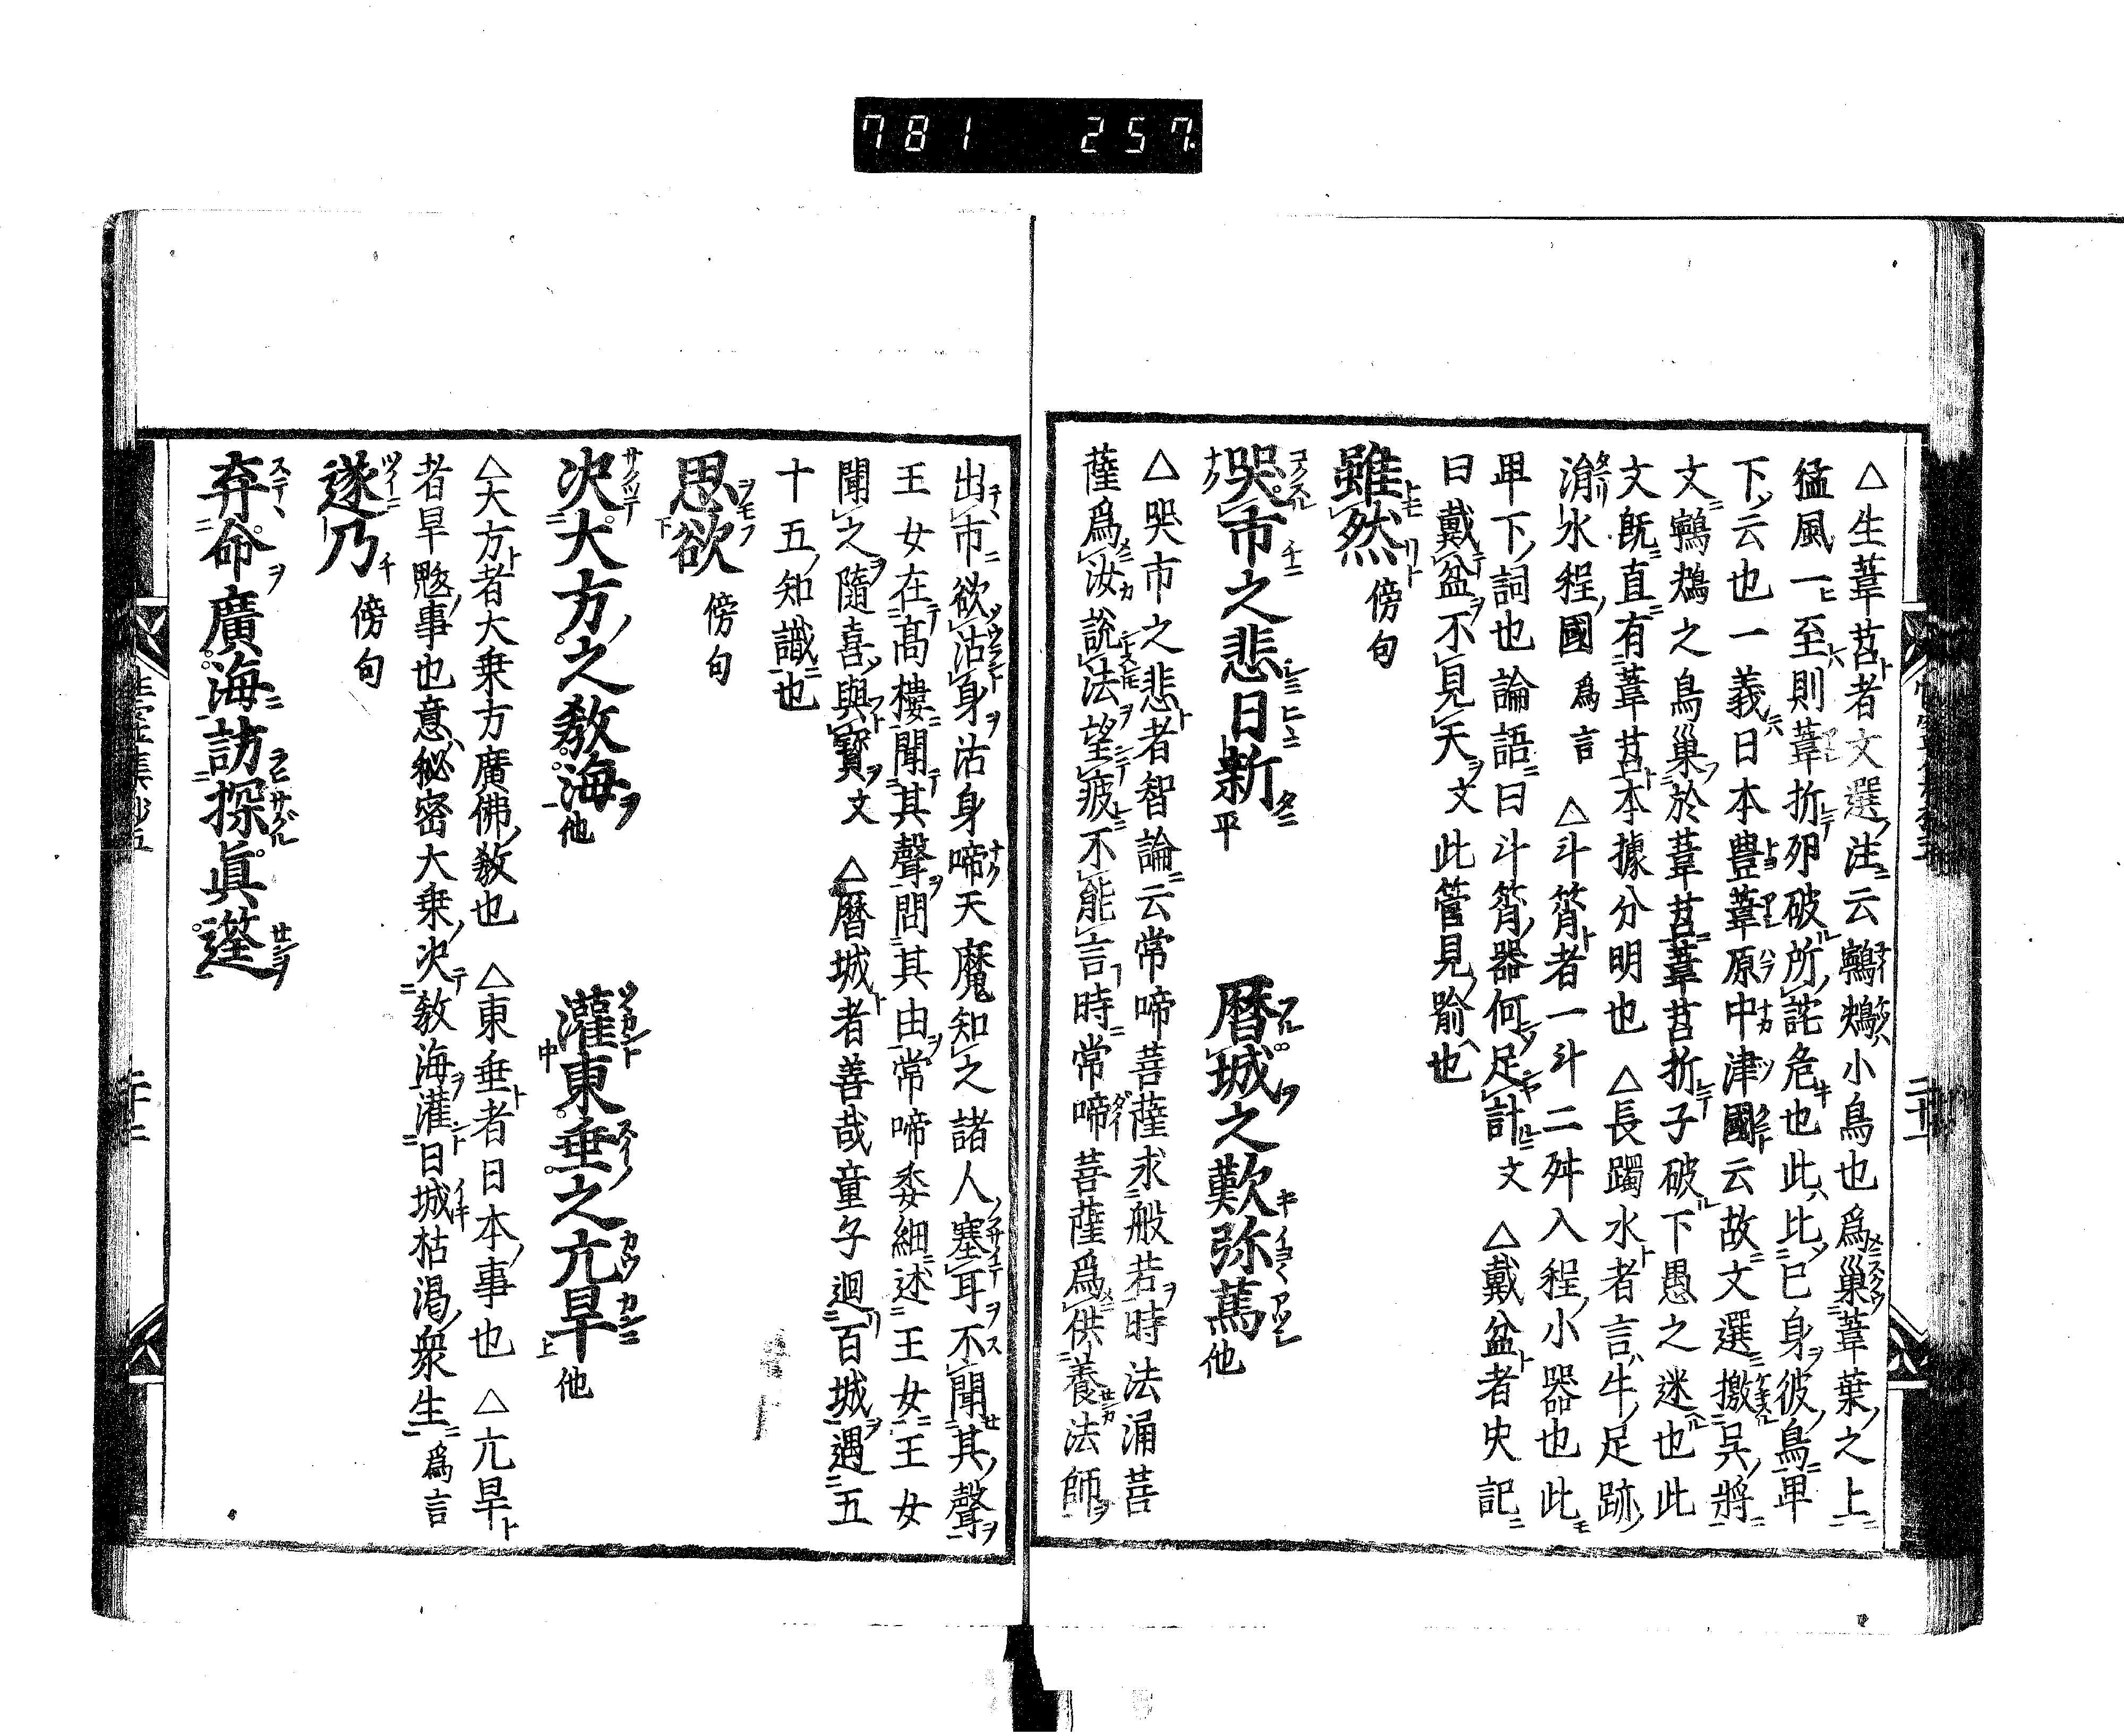 781 257
△生葦苕者文選注云鸋鴂小鳥也爲巢葦葉之上
猛風一至則葦折卵破所詫危也此比已身彼鳥卑
下云也一義日本豊葦原中津國云故文選檄呉將
文鸋鴂之鳥巢於葦苕葦苕折子破下愚之迷也此
文既直有葦苕本據分明也 △長躅水者言牛足跡
淯水程國爲言 △斗筲者一斗二舛入程小器也此
卑下詞也論語曰斗筲器何足計文 △戴盆者史記
曰戴盆不見天文此管見喻也
雖然 傍句
哭市之悲日新 平 曆城之歎弥萬 他
△哭市之悲者智論云常啼菩薩求般若時法涌菩
薩爲汝說法望疲不能言時常啼菩薩爲供養法師
出市欲沽身沽身啼天魔知之諸人塞耳不聞其聲
王女在高樓聞其聲問其由常啼委細述王女王女
聞之隨喜與寶文 △曆城者善哉童子迴百城遇五
十五知識也
思欲 傍句
决大方之教海 他 灌東垂之亢旱 他
△大方者大乗方廣佛教也 △東垂者日本事也 △亢旱
者旱魃事也意秘密大乗决教海灌日城枯渇衆生爲言
遂乃 傍句
弃命廣海訪探眞蓯